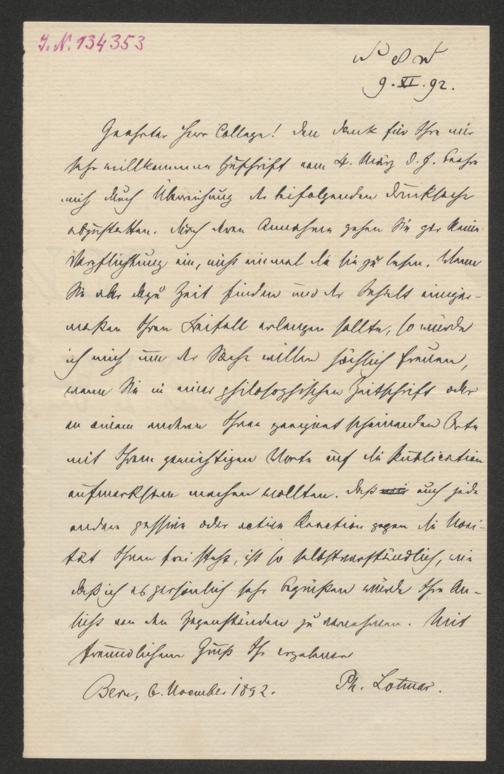 I. N. 134353
9. XI. 92.
Geehrter Herr College! Den Dank für Ihre mir
sehr willkommene Zuschrift vom 4. März d. J.
mich durch Überreichung der beifolgenden Drucksache
abzustatten. Durch deren Annahme gehen Sie gar keine
Verpflichtung ein, nicht einmal die sie zu lesen. Wenn
Sie aber dazu Zeit finden und der Inhalt einiger-
maßen Ihren Beifall erlangen sollte, so würde
ich mich um der Sache willen herzlich freuen,
wenn Sie in einer philosophischen Zeitschrift oder
an einem anderen Ihnen geeignet scheinenden Orte
mit Ihrem gewichtigen Worte auf die Publication
aufmerksam machen wollten. Daß auch jede
andere passive oder active Reaction gegen die Novi-
tät Ihnen frei steht, ist so selbstverständlich, wie
daß ich es persönlich sehr begrüßen würde Ihre An-
sicht von den Gegenständen zu vernehmen. Mit
freundlichem Gruß Ihr ergebener
Bern, 6. November 1892. Ph. Lotmar.